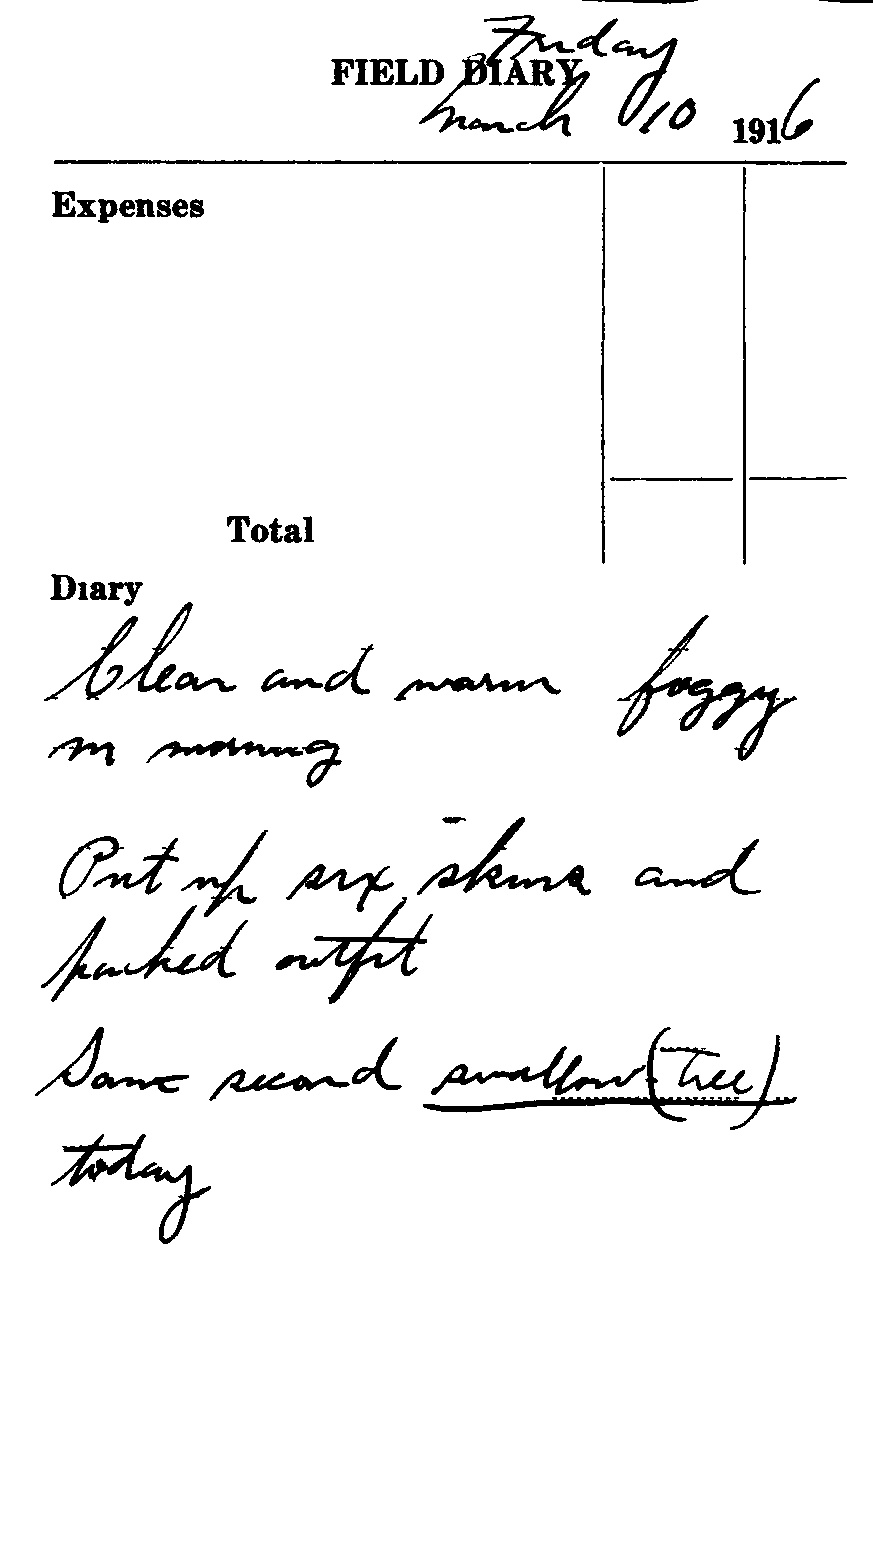 Friday
FIELD DIARY
March 10 1916
Expenses
Total
Diary
Clear and warm foggy
in morning
Put up six skins and
packed outfit
second swallow (Tree)
today